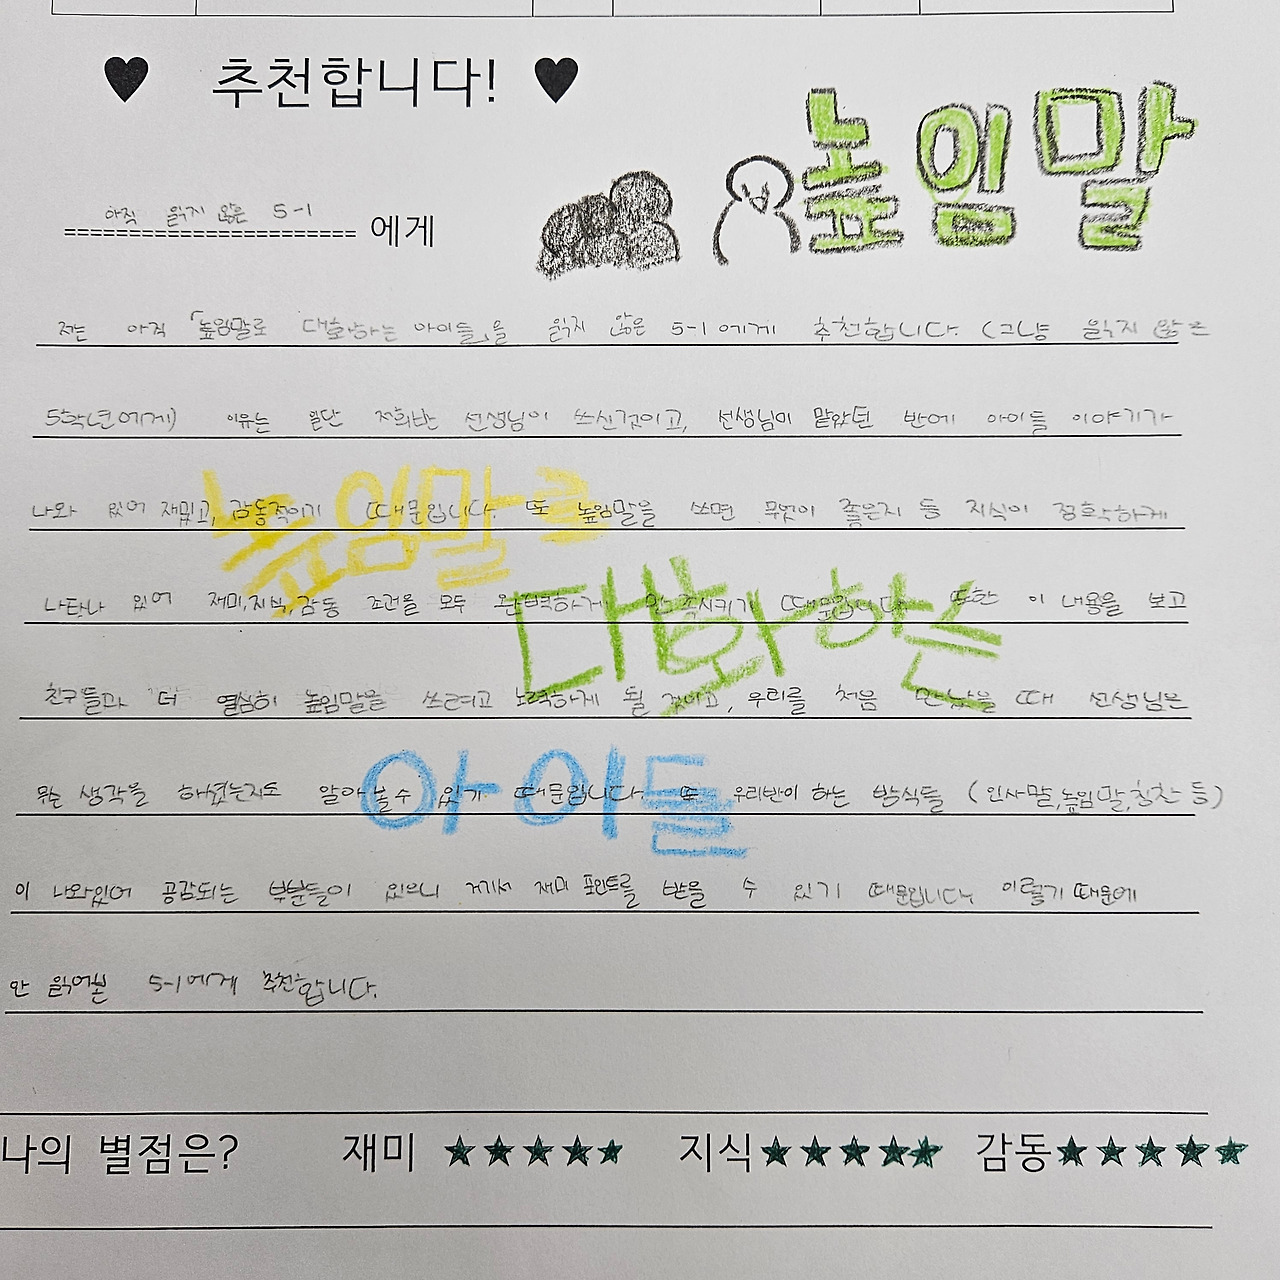 ♥ 추천합니다! ♥
높임말
아직 읽지 않은 5-1 에게
저는 아직 「높임말로 대화하는 아이들」을 읽지 않은 5-1에게 추천합니다. (그냥 읽지 않은
5학년에게) 이유는 일단 저희반 선생님이 쓰신것이고, 선생님이 맡았던 반에 아이들 이야기가
나와 있어 재밌고, 감동적이기 때문입니다. 또 높임말을 쓰면 무엇이 좋은지 등 지식이 정확하게
나타나 있어 재미,지식,감동 조건을 모두 완벽하게 만족시키기 때문입니다. 또한 이 내용을 보고
친구들과 더 열심히 높임말을 쓰려고 노력하게 될 것이고, 우리를 처음 만났을 때 선생님은
무슨 생각을 하셨는지도 알아볼 수 있기 때문입니다. 또 우리반이 하는 방식들 (인사말,높임말,칭찬 등)
이 나와있어 공감되는 부분들이 있으니 거기서 재미 포인트를 받을 수 있기 때문입니다. 이렇기 때문에
안 읽어본 5-1에게 추천합니다.
높임말로
대화하는
아이들
나의 별점은? 재미 ★★★★★ 지식★★★★★ 감동★★★★★